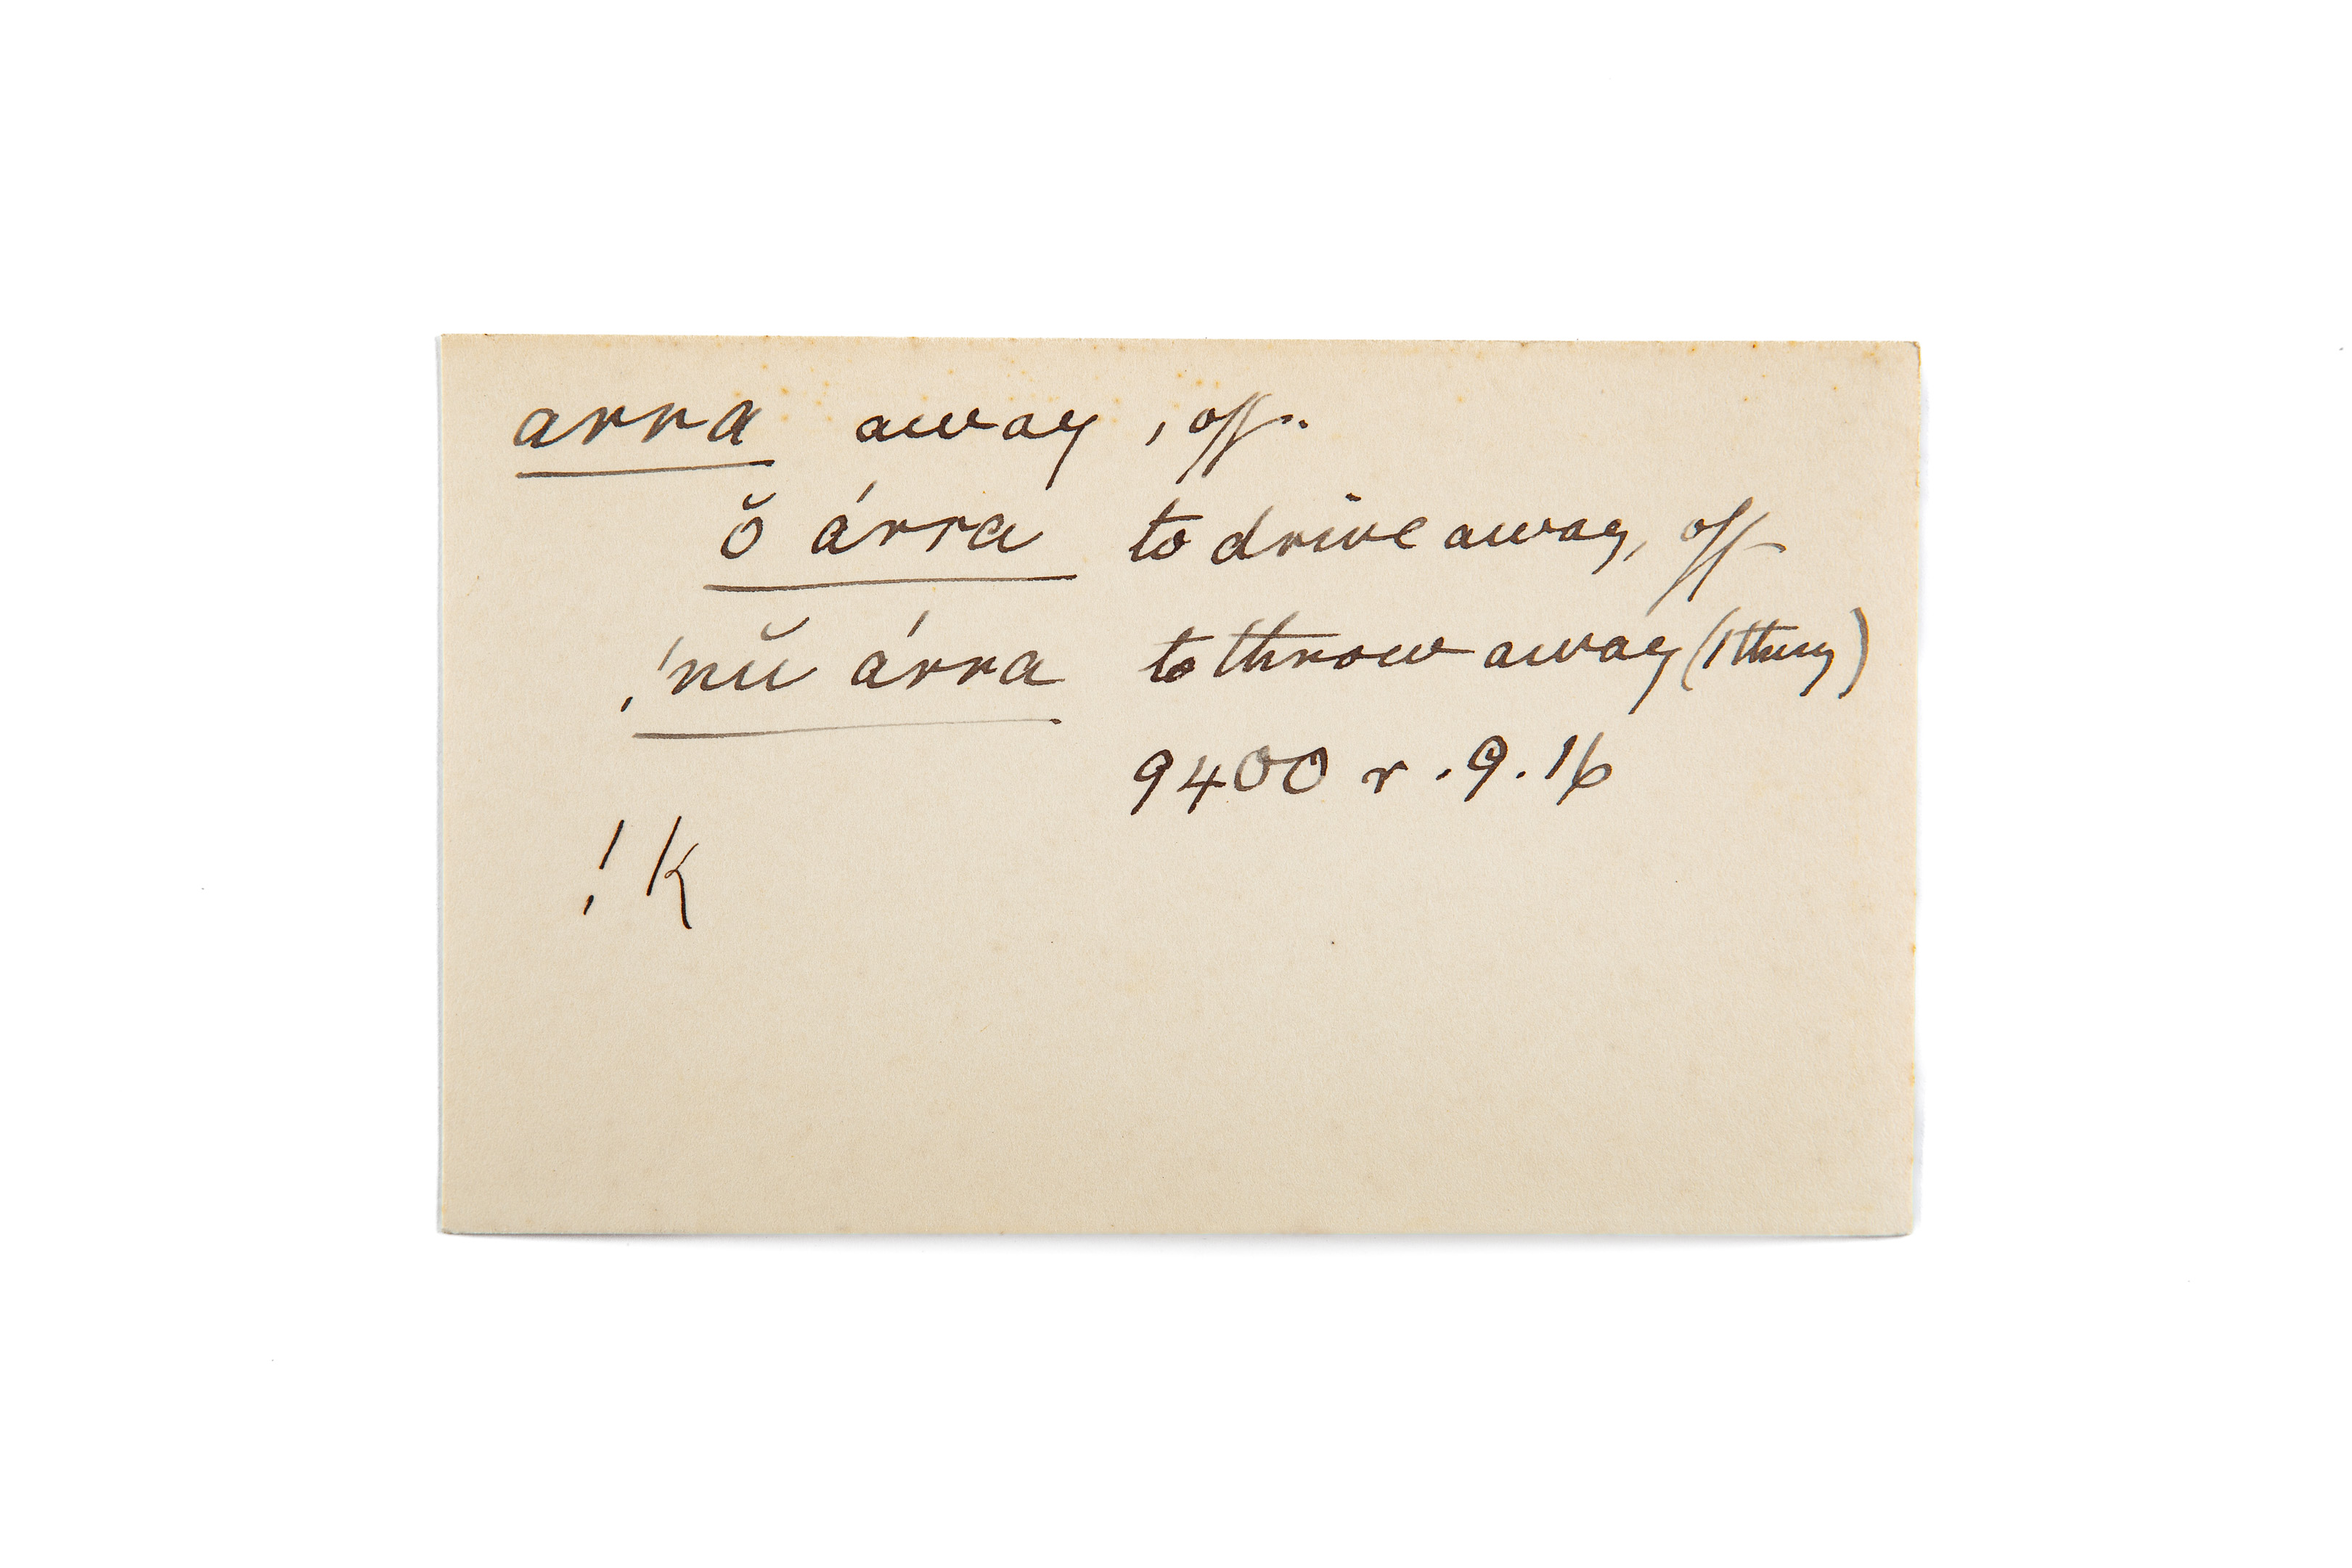 arra away, off.
ŏ árra to drive away, off
!nŭ árra to throw away (1 thing)
9400 r. 9. 16
! k